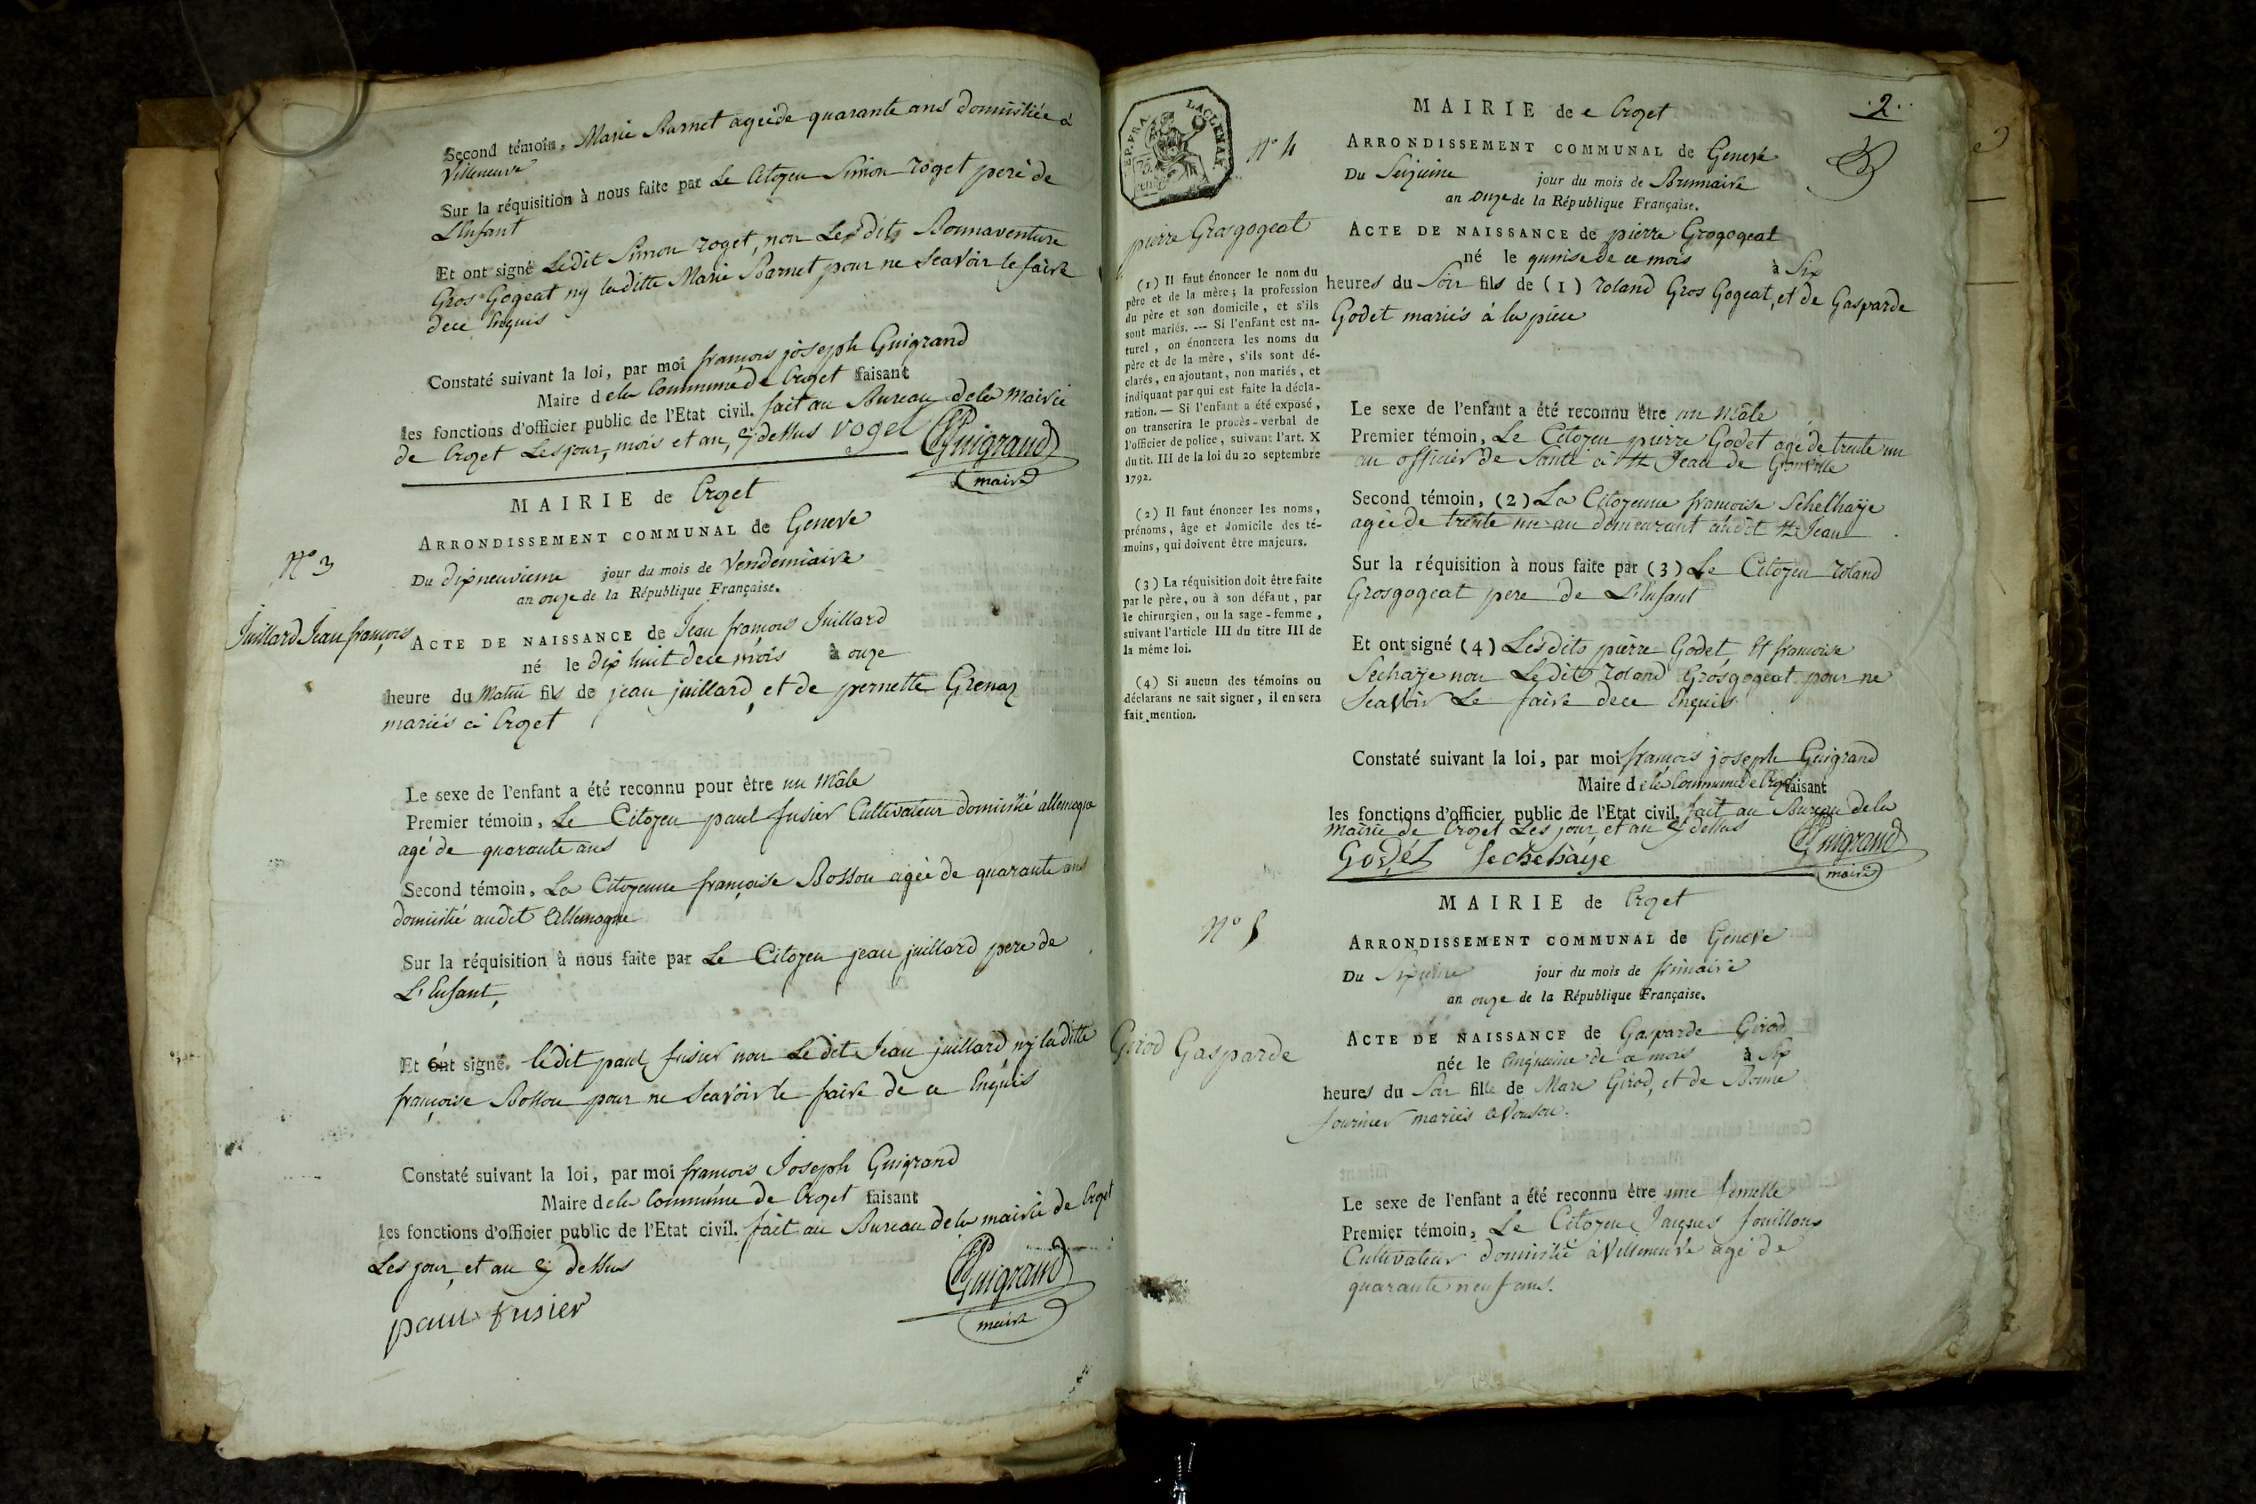 Second témoin, Marie Barnet agéé de quarante ans domiciliée à
Villeneuve
Sur la réquisition à nous faite par Le Citoyen Simon roget peré de
L'Enfant
Et ont signé Ledit Simon roget, non Lesdits Bonnaventure
Gros Gogeat ny laditte Marie Barnet, pour ne Scavoir le faire
dece Enquis
Constaté suivant la loi, par moi françois joseph Guigrand
Maire dela Commune de Crozet faisant
les fonctions d'officier public de l'Etat civil. fait au Bureau dela mairie
de Crozet Les jour, mois et an, cy dessus rogel Guigrand
maire
MAIRIE de Crozet
ARRONDISSEMENT COMMUNAL de Geneve
N° 3
Du dixneuvieme jour du mois de Vendemiaire
an onze de la République Française.
Juillard Jean françois
ACTE DE NAISSANCE de Jean françois Juillard
né le dix huit dece mois à onze
heure du Matin fils de jean juillard, et de pernette Grenaz
mariés à Crozet
Le sexe de l'enfant a été reconnu pour être un Mâle
Premier témoin, Le Citoyen paul fusier Cultivateur domicilié allemogne
agé de quarante ans
Second témoin, La Citoyenne françoise Bosson agéé de quarante ans
domicilié audit Allemogne
Sur la réquisition à nous faite par Le Citoyen jean juillard pere de
L'Enfant,
Et ont signé. ledit paul fusier non Ledit Jean juillard ny laditte
françoise Bosson pour ne Scavoir le faire de ce Enquis
Constaté suivant la loi, par moi françois Joseph Guigrand
Maire dela Commune de Crozet faisant
les fonctions d'officier public de l'Etat civil. fait au Bureau dela mairie de Crozet
Les jour, et an cy dessus
Guigrand
paul fusier
maire
MAIRIE de Crozet
.2..
N° 4
ARRONDISSEMENT COMMUNAL de Geneve
Du Seizieme jour du mois de Brumaire
an onze de la République Française.
pierre Grosgogeat
ACTE DE NAISSANCE de pierre Grosgogeat
né le quinse de ce mois à Six
heures du Soir fils de (1) roland Gros Gogeat, et de Gasparde
Godet mariés à la
(1) Il faut énoncer le nom du
père et de la mère; la profession
du père et son domicile, et s'ils
sont mariés. --- Si l'enfant est na-
turel, on énoncera les noms du
père et de la mère, s'ils sont dé-
clarés, en ajoutant, non mariés, et
indiquant par qui est faite la décla-
ration. — Si l'enfant a été exposé,
on transcrira le procès-verbal de
l'officier de police, suivant l'art. X
du tit. III de la loi du 20 septembre
1792.
(2) Il faut énoncer les noms,
prénoms, âge et domicile des té-
moins, qui doivent être majeurs.
(3) La réquisition doit être faite
par le père, ou à son défaut, par
le chirurgien, ou la sage-femme,
suivant l'article III du titre III de
la même loi.
(4) Si aucun des témoins ou
déclarans ne sait signer, il en sera
fait mention.
Le sexe de l'enfant a été reconnu être un Mâle
Premier témoin, Le Citoyen pierre Godet agé de trente un
an officier de Santé à St Jean de Gonville
Second témoin, (2) La Citoyenne françoise Sehelhaÿe
agéé de trente un an demeurant audit St Jean
Sur la réquisition à nous faite par (3) Le Citoyen roland
Grosgogeat pere de L'Enfant
Et ont signé (4) Lesdits pierre Godet et françoise
Sechaÿe non Ledit roland Grosgogeat pour ne
Scavoir Le faire dece Enquis
Constaté suivant la loi, par moi françois joseph Guigrand
Maire dela Commune de Crozet faisant
les fonctions d'officier public de l'Etat civil. fait au Bureau dela
Mairie de Crozet Les jour, et an cy dessus
Godet Sechehaÿe Guigrand
maire
MAIRIE de Crozet
N° 5
ARRONDISSEMENT COMMUNAL de Geneve
Du Sixieme jour du mois de frimaire
an onze de la République Française.
Girod Gasparde
ACTE DE NAISSANCE de Gasparde Girod
née le cinquieme de ce mois à Six
heures du Soir fille de Marc Girod, et de Bonne
fournier mariés
Le sexe de l'enfant a été reconnu être une femelle
Premier témoin, Le Citoyen Jacques fouilloux
Cultivateur domicilié à Villeneuve agé de
quarante neuf ans.